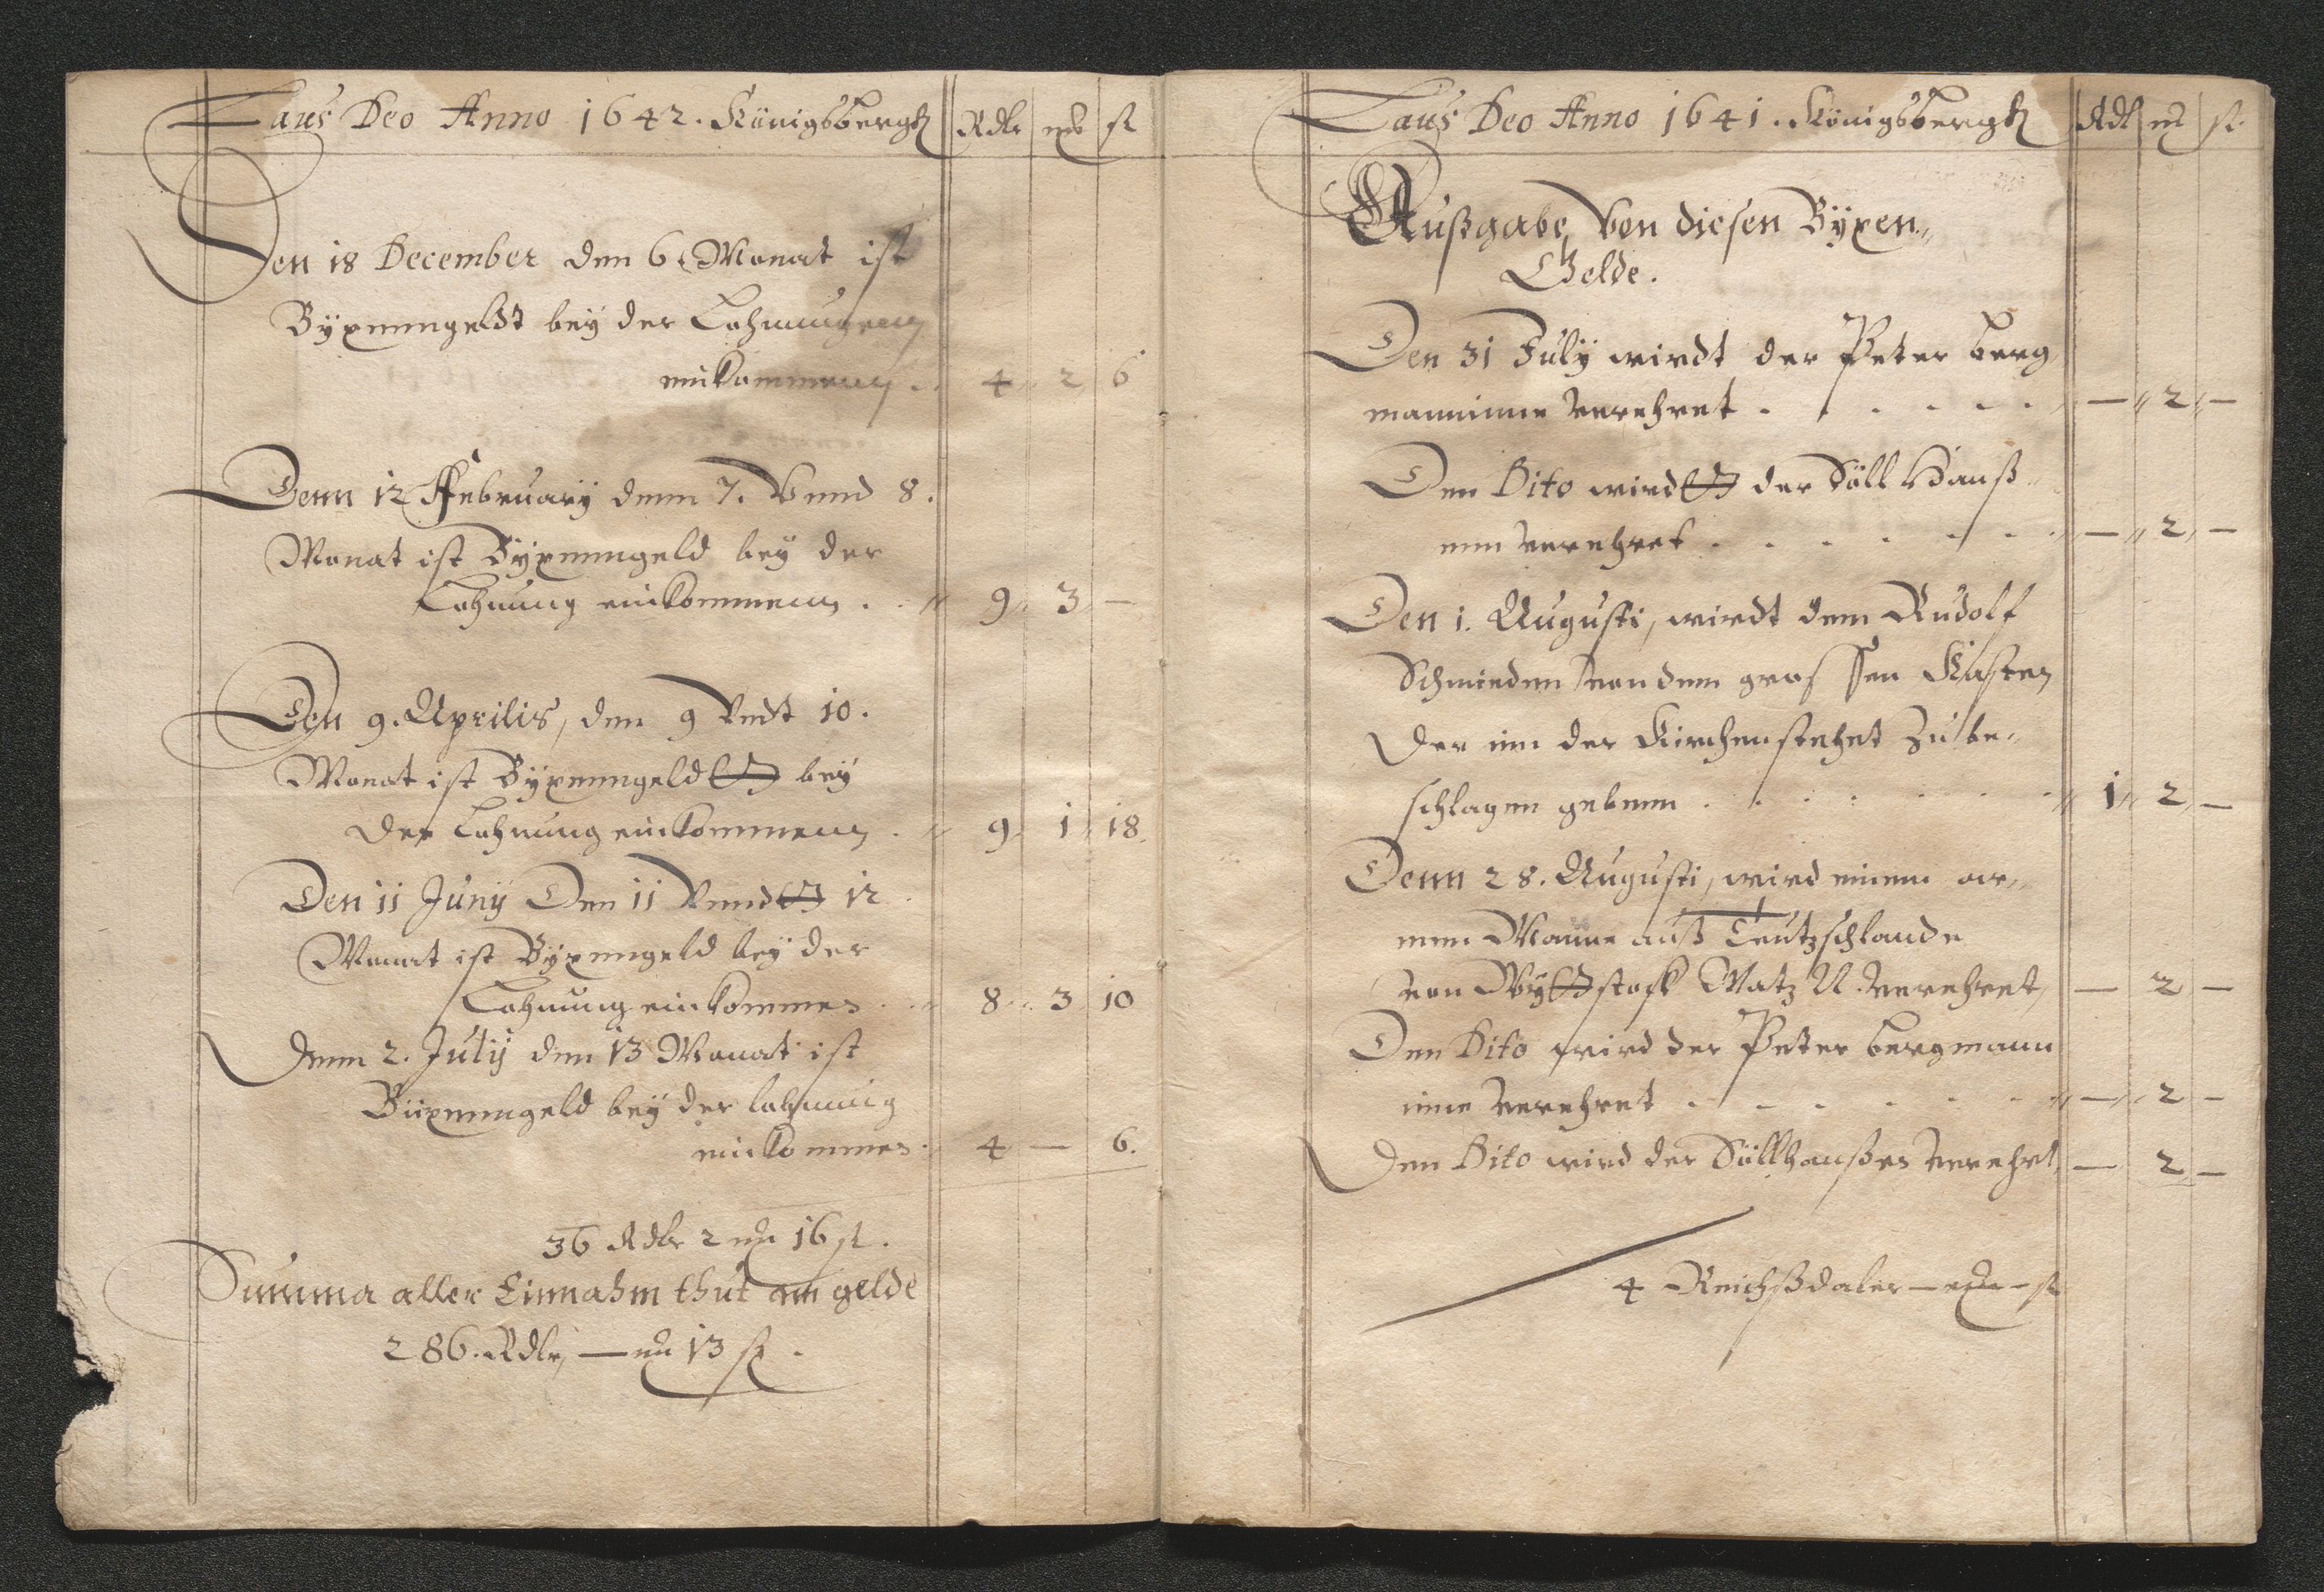 Laus Deo Anno 1642. Königsbergh Rdlr ort ß
Den 18 December den 6 Monat ist
Büxenngeldt bey der Lohnungenn
einkommenn . . 4 2 6
Denn 12 Februarÿ denn 7. Vnnd 8.
Monat ist Büxenngeld bey der
Lohnung einkommenn . . 9 3 —
Den 9. Aprilis, den 9 Vndt 10.
Monat ist Büxenngeldt bey
der Lohnung einkommenn . 9 1 18.
Den 11 Junÿ Den 11 Vnndt 12
Monat ist Büxengeld bey der
Lohnung einkommen . . 8 3 10
Denn 2. Julÿ den 13 Monat ist
Büxenngeld bey der lohnung
einkommen 4 — 6.
36 Rdlr 2 ort 16 ß.
Summa aller Einnahm thut an gelde
286. Rdlr, — ort 13 ß.
Laus Deo Anno 1641. Königsbergh Rdl ort ß
Außgabe, Von diesen Büxen„
Gelde.
Den 31 Julÿ wirdt der Peter berg
manninne verehret . . . . . . — 2 —
Den Dito wirdt der Söll Hanß„
nen verehret . . . . . . — 2 —
Den 1. Augusti, wirdt dem Rudolf
Schmieden von dem grossen Kasten
der inn der Kirchen stehet zu be„
schlagen gebenn . . . . . . 1 2 —
Denn 28. Augusti, wird einem ar„
men Manne auß Teutzschlande
von Wydtstock Matz N. verehret, — 2 —
Den Dito wird der Peter bergmann
inne verehret . . . . . . — 2 —
Den Dito wird der Söllhanßen verehrt, — 2 —
4 Reichßdaler — ort — ß